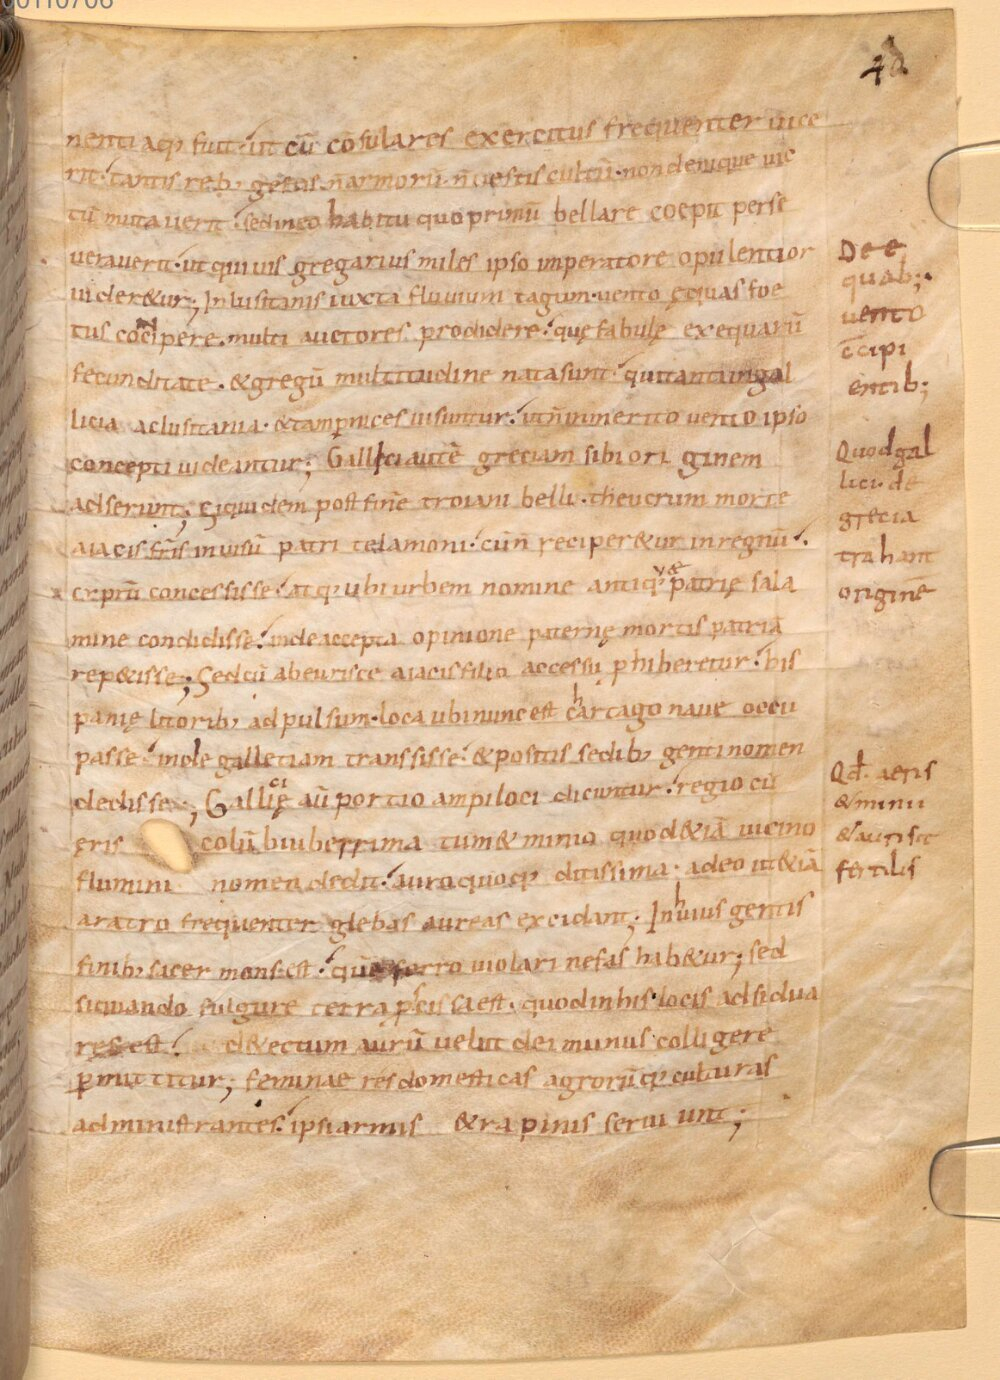 48
nentiaq; fuit. ut cū cōsulares exercitus frequenter uice
rit. tantis reb; gestis. n̄ armorū. n̄ uestis cultū. non denique uic
tū mutauerit. sed in eo habitu quo primū bellare coepit perse
uerauerit. ut quiuis gregarius miles ipso imperatore opulentior
uider&ur; In lusitanis iuxta fluuium tagum. uento ęquas foe
tus concipere. multi auctores prodidere. quę fabulę ex equarū
fecunditate. & gregū multitudine nata sunt. qui tanti in gal
licia ac lusitania. & tam p̄nices uisuntur. ut n̄ inmerito uento ipso
concepti uideantur; Gallici autē greciam sibi ori ginem
adserunt; Siquidem post finē troiani belli. theucrum morte
aiacis fr̄is inuisū patri telamoni. cū n̄ reciper&ur in regnū.
cyprū concessisse. atq; ubi urbem nomine antiquae patrię sala
mine condidisse. inde accepta opinione paternę mortis patriā
rep&isse; Sed cū ab eurisce aiacis filio accessu phiberetur. his
panię litorib; adpulsum. loca ubi nunc est chartago noue occu
passe. inde galletiam transsisse. & positis sedib; genti nomen
dedisse; Gallicię aū portio ampiloci dicuntur. regio cū
ęris colū biuberrima tum & minio quod &iā uicino
flumini nomen dedit. auro quoq; ditissima. adeo ut &iā
aratro frequenter glebas aureas excidant; In huius gentis
finib; sacer mons est. quē ferro uiolari nefas hab&ur; sed
siquando fulgure terra p̄cissa est. quod in his locis adsidua
res est. d&ectum aurū uelut dei munus colligere
p̄mittitur; feminae res domesticas agrorūq; culturas
administrantes. ipsi armis & rapinis seruiunt;
De e
quab;
uento
c̄cipi
entib;
Quod gal
lici. de
grecia
trahant
originē
Qd. aeris
& minii
& auri sit
fertilis